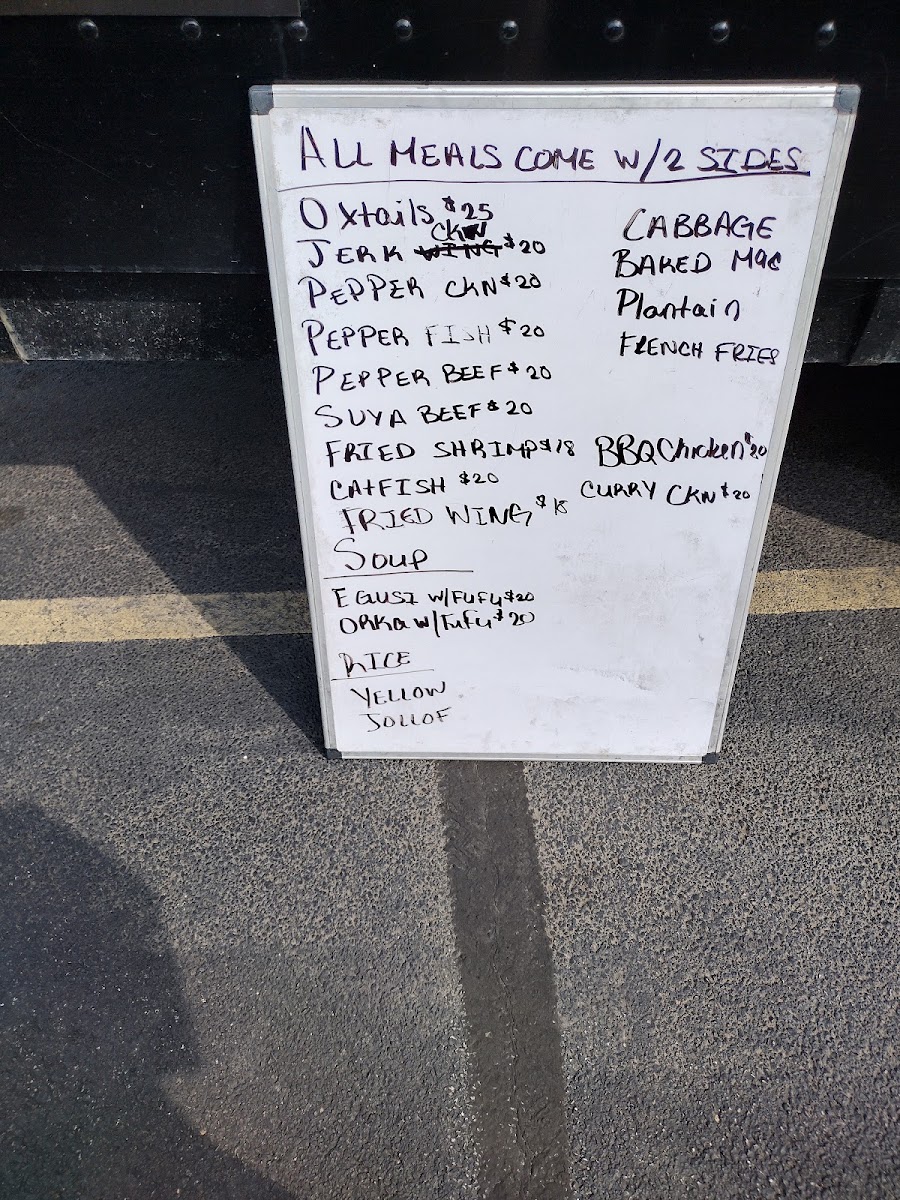 ALL MEALS COME W/2 SIDES
Oxtails $25
JERK CKN $20
PEPPER CKN $20
PEPPER FISH $20
PEPPER BEEF $20
SUYA BEEF $20
FRIED SHRIMP $18
CATFISH $20
FRIED WING $18
CABBAGE
BAKED Mac
Plantain
FRENCH FRIES
BBQ Chicken $20
CURRY CKN $20
SOUP
EGUSI W/FUFU $20
ORKa W/FuFu $20
RICE
YELLOW
JOLLOF